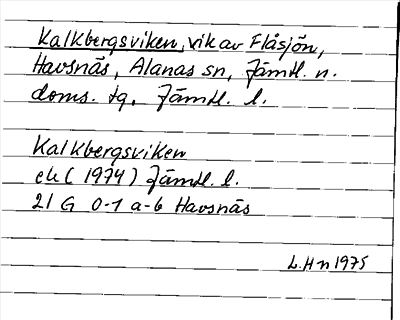 Kalkbergsviken, vik av Flåsjön,
Havsnäs, Alanäs sn, Jämtl. n.
doms. tg, Jämtl. l.
Kalkbergsviken
ek (1974) Jämtl. l.
21 G 0-1 a-b Havsnäs
L. Hn 1975